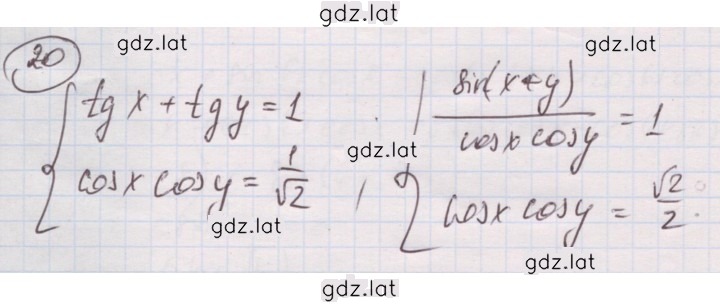 gdz.lat
20
gdz.lat
gdz.lat
tg x + tg y = 1
sin(x+y)/cosx cosy = 1
gdz.lat
cosx cosy = 1/√2,
cosx cosy = √2/2.
gdz.lat
gdz.lat
gdz.lat